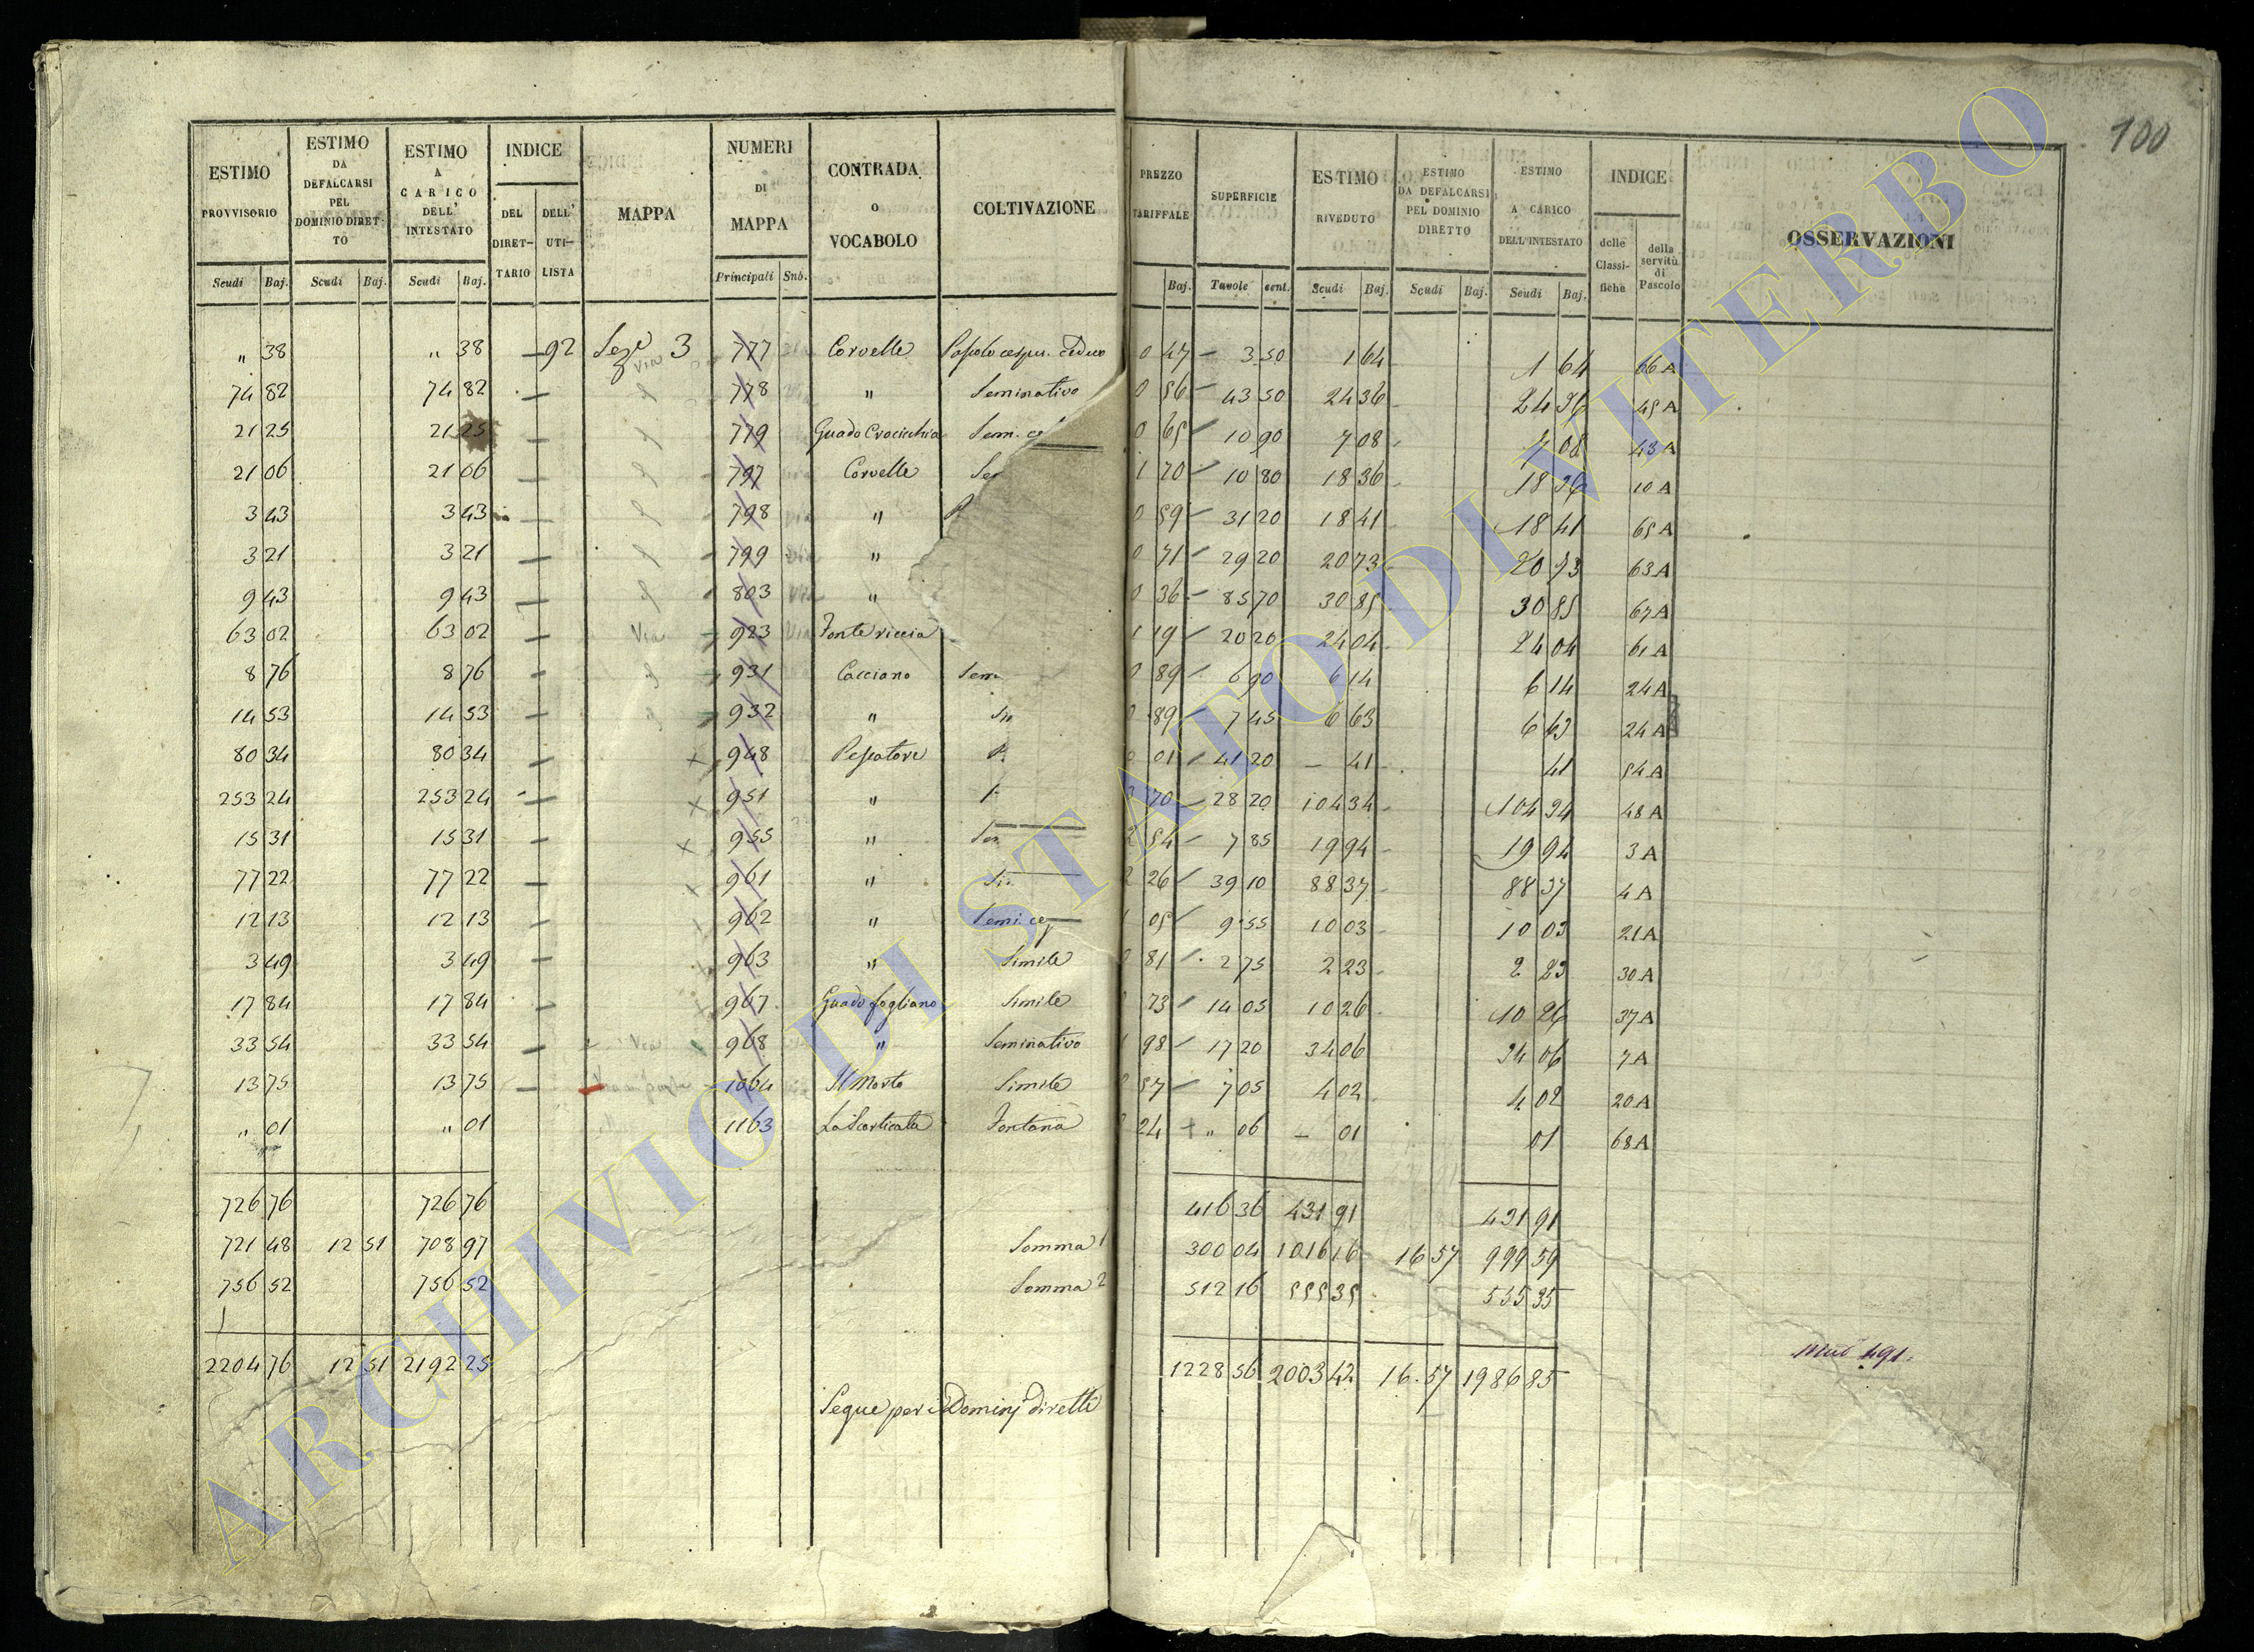 100
ESTIMO PROVVISORIO | ESTIMO DA DEFALCARSI PEL DOMINIO DIRETTO | ESTIMO A CARICO DELL' INTESTATO | INDICE DEL DIRETTARIO | DELL' UTILISTA | MAPPA | NUMERI DI MAPPA | CONTRADA O VOCABOLO | COLTIVAZIONE | PREZZO TARIFFALE | SUPERFICIE | ESTIMO RIVEDUTO | ESTIMO DA DEFALCARSI PEL DOMINIO DIRETTO | ESTIMO A CARICO DELL'INTESTATO | INDICE delle Classifiche | della servitù di Pascolo | OSSERVAZIONI
Scudi Baj. | Scudi Baj. | Scudi Baj. | Principali Sub. | Baj. | Tavole cent. | Scudi Baj. | Scudi Baj. | Scudi Baj.
" 38 | " 38 | — 92 | Seze 3 | 777 | Corvelle | cespu. ceduo | 0 47 | 3 50 | 1 64 | 1 64 | 66 A
74 82 | 74 82 | — | 778 | " | Seminativo | 0 56 | 43 50 | 24 36 | 24 36 | 45 A
21 25 | 21 25 | — | 779 | Guado Crocicchia | Sem. | 0 65 | 10 90 | 7 08 | 7 08 | 43 A
21 06 | 21 06 | — | 797 | Corvelle | 1 70 | 10 80 | 18 36 | 18 36 | 10 A
3 43 | 3 43 | — | 798 | " | 0 59 | 31 20 | 18 41 | 18 41 | 65 A
3 21 | 3 21 | — | 799 | " | 0 71 | 29 20 | 20 73 | 20 73 | 63 A
9 43 | 9 43 | — | 803 | " | 0 36 | 85 70 | 30 85 | 30 85 | 67 A
63 02 | 63 02 | — | Via | 923 | Fonte riccia | 1 19 | 20 20 | 24 04 | 24 04 | 61 A
8 76 | 8 76 | — | 931 | Cacciano | Sem. | 0 89 | 6 90 | 6 14 | 6 14 | 24 A
14 53 | 14 53 | — | 932 | " | 0 89 | 7 45 | 6 63 | 6 63 | 24 A
80 34 | 80 34 | — | × | 948 | Pescatore | 0 01 | 41 20 | — 41 | 41 | 54 A
253 24 | 253 24 | — | × | 951 | " | 70 | 28 20 | 104 34 | 104 34 | 48 A
15 31 | 15 31 | × | 955 | " | 2 54 | 7 85 | 19 94 | 19 94 | 3 A
77 22 | 77 22 | — | 961 | " | 2 26 | 39 10 | 88 37 | 88 37 | 4 A
12 13 | 12 13 | — | 962 | " | 1 05 | 9 55 | 10 03 | 10 03 | 21 A
3 49 | 3 49 | — | 963 | " | Simile | 81 | 2 75 | 2 23 | 2 23 | 30 A
17 84 | 17 84 | — | 967 | Guado fogliano | Simile | 73 | 14 05 | 10 26 | 10 26 | 37 A
33 54 | 33 54 | — | Via | 968 | " | Seminativo | 1 98 | 17 20 | 34 06 | 34 06 | 7 A
13 75 | 13 75 | — | 1064 | Il Morto | Simile | 57 | 7 05 | 4 02 | 4 02 | 20 A
" 01 | " 01 | 1163 | La Scorticata | Fontana | 24 | + " 06 | — 01 | 01 | 68 A
726 76 | 726 76 | 416 36 | 431 91 | 431 91
721 48 | 12 51 | 708 97 | Somma 1 | 300 04 | 1016 16 | 16 57 | 999 59
756 52 | 756 52 | Somma 2 | 512 16 | 555 35 | 555 35
2204 76 | 12 51 | 2192 25 | 1228 56 | 2003 42 | 16.57 | 1986 85
491.
Segue per i Dominj diretti
ARCHIVIO DI STATO DI VITERBO